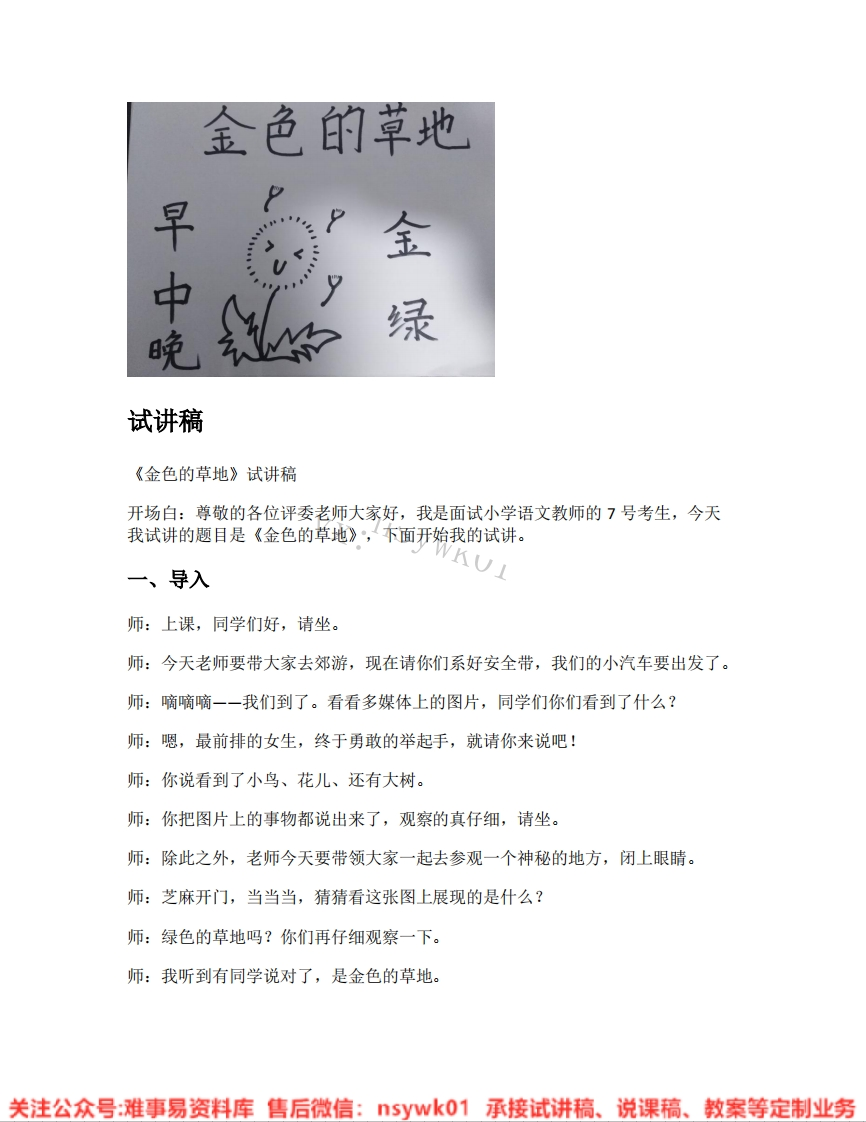 金色的草地
早
金
中
绿
晚
试讲稿
《金色的草地》试讲稿
开场白：尊敬的各位评委老师大家好，我是面试小学语文教师的 7 号考生，今天
我试讲的题目是《金色的草地》，下面开始我的试讲。
一、导入
师：上课，同学们好，请坐。
师：今天老师要带大家去郊游，现在请你们系好安全带，我们的小汽车要出发了。
师：嘀嘀嘀——我们到了。看看多媒体上的图片，同学们你们看到了什么？
师：嗯，最前排的女生，终于勇敢的举起手，就请你来说吧！
师：你说看到了小鸟、花儿、还有大树。
师：你把图片上的事物都说出来了，观察的真仔细，请坐。
师：除此之外，老师今天要带领大家一起去参观一个神秘的地方，闭上眼睛。
师：芝麻开门，当当当，猜猜看这张图上展现的是什么？
师：绿色的草地吗？你们再仔细观察一下。
师：我听到有同学说对了，是金色的草地。
关注公众号:难事易资料库 售后微信：nsywk01 承接试讲稿、说课稿、教案等定制业务